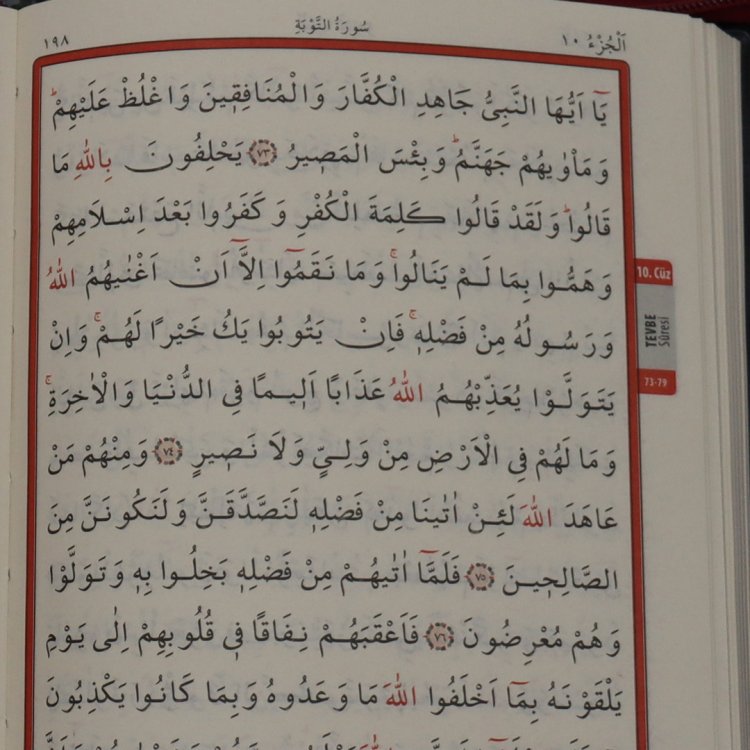 ١٩٨ سُورَةُ التَّوْبَةِ اَلْجُزْءُ ١٠
يَٓا اَيُّهَا النَّبِيُّ جَاهِدِ الْكُفَّارَ وَالْمُنَافِق۪ينَ وَاغْلُظْ عَلَيْهِمْۜ
وَمَأْوٰيهُمْ جَهَنَّمُۜ وَبِئْسَ الْمَص۪يرُ ﴿٧٣﴾ يَحْلِفُونَ بِاللّٰهِ مَا
قَالُواۜ وَلَقَدْ قَالُوا كَلِمَةَ الْكُفْرِ وَكَفَرُوا بَعْدَ اِسْلَامِهِمْ
وَهَمُّوا بِمَا لَمْ يَنَالُواۚ وَمَا نَقَمُٓوا اِلَّٓا اَنْ اَغْنٰيهُمُ اللّٰهُ
وَرَسُولُهُ مِنْ فَضْلِه۪ۚ فَاِنْ يَتُوبُوا يَكُ خَيْرًا لَهُمْۚ وَاِنْ
يَتَوَلَّوْا يُعَذِّبْهُمُ اللّٰهُ عَذَابًا اَل۪يمًا فِي الدُّنْيَا وَالْاٰخِرَةِۚ
وَمَا لَهُمْ فِي الْاَرْضِ مِنْ وَلِيٍّ وَلَا نَص۪يرٍ ﴿٧٤﴾ وَمِنْهُمْ مَنْ
عَاهَدَ اللّٰهَ لَئِنْ اٰتٰينَا مِنْ فَضْلِه۪ لَنَصَّدَّقَنَّ وَلَنَكُونَنَّ مِنَ
الصَّالِح۪ينَ ﴿٧٥﴾ فَلَمَّٓا اٰتٰيهُمْ مِنْ فَضْلِه۪ بَخِلُوا بِه۪ وَتَوَلَّوْا
وَهُمْ مُعْرِضُونَ ﴿٧٦﴾ فَاَعْقَبَهُمْ نِفَاقًا ف۪ي قُلُوبِهِمْ اِلٰى يَوْمِ
يَلْقَوْنَهُ بِمَٓا اَخْلَفُوا اللّٰهَ مَا وَعَدُوهُ وَبِمَا كَانُوا يَكْذِبُونَ
10. Cüz
TEVBE
Sûresi
73-79